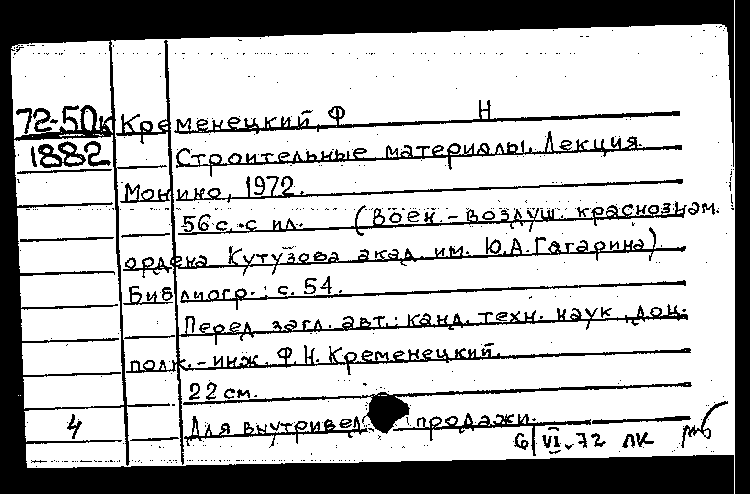 72-50к Кременецкий, Ф Н
1882 Строительные материалы. Лекция.
Монино, 1972.
56 с. с ил. (Воен.-воздуш. краснознам.
ордена Кутузова акад. им. Ю.А.Гагарина).
Библиогр.: с. 54.
Перед загл. авт.: канд. техн. наук, доц.
полк.-инж. Ф.Н.Кременецкий.
22 см.
4 Для внутривед продажи.
6/VI-72 ЛК